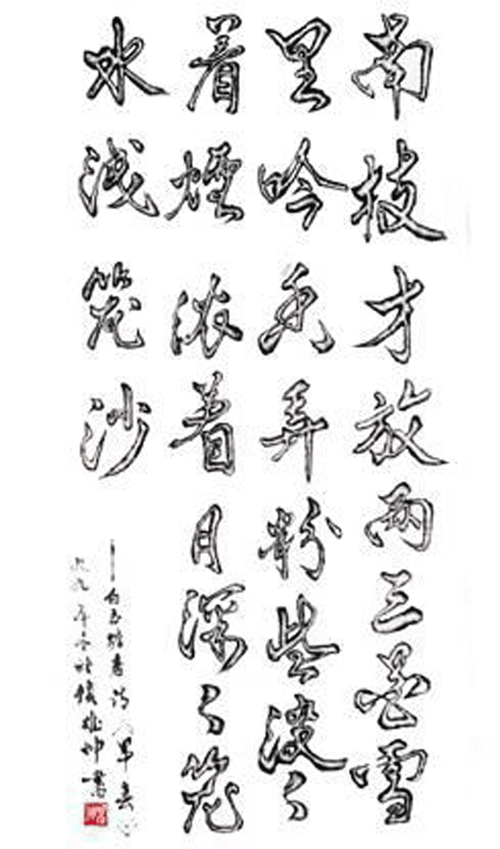 南枝才放两三花雪
里吟香弄粉些淡々
着煙浓着月深々笼
水浅笼沙
——白玉蟾 诗《早春》
九九年冬 书